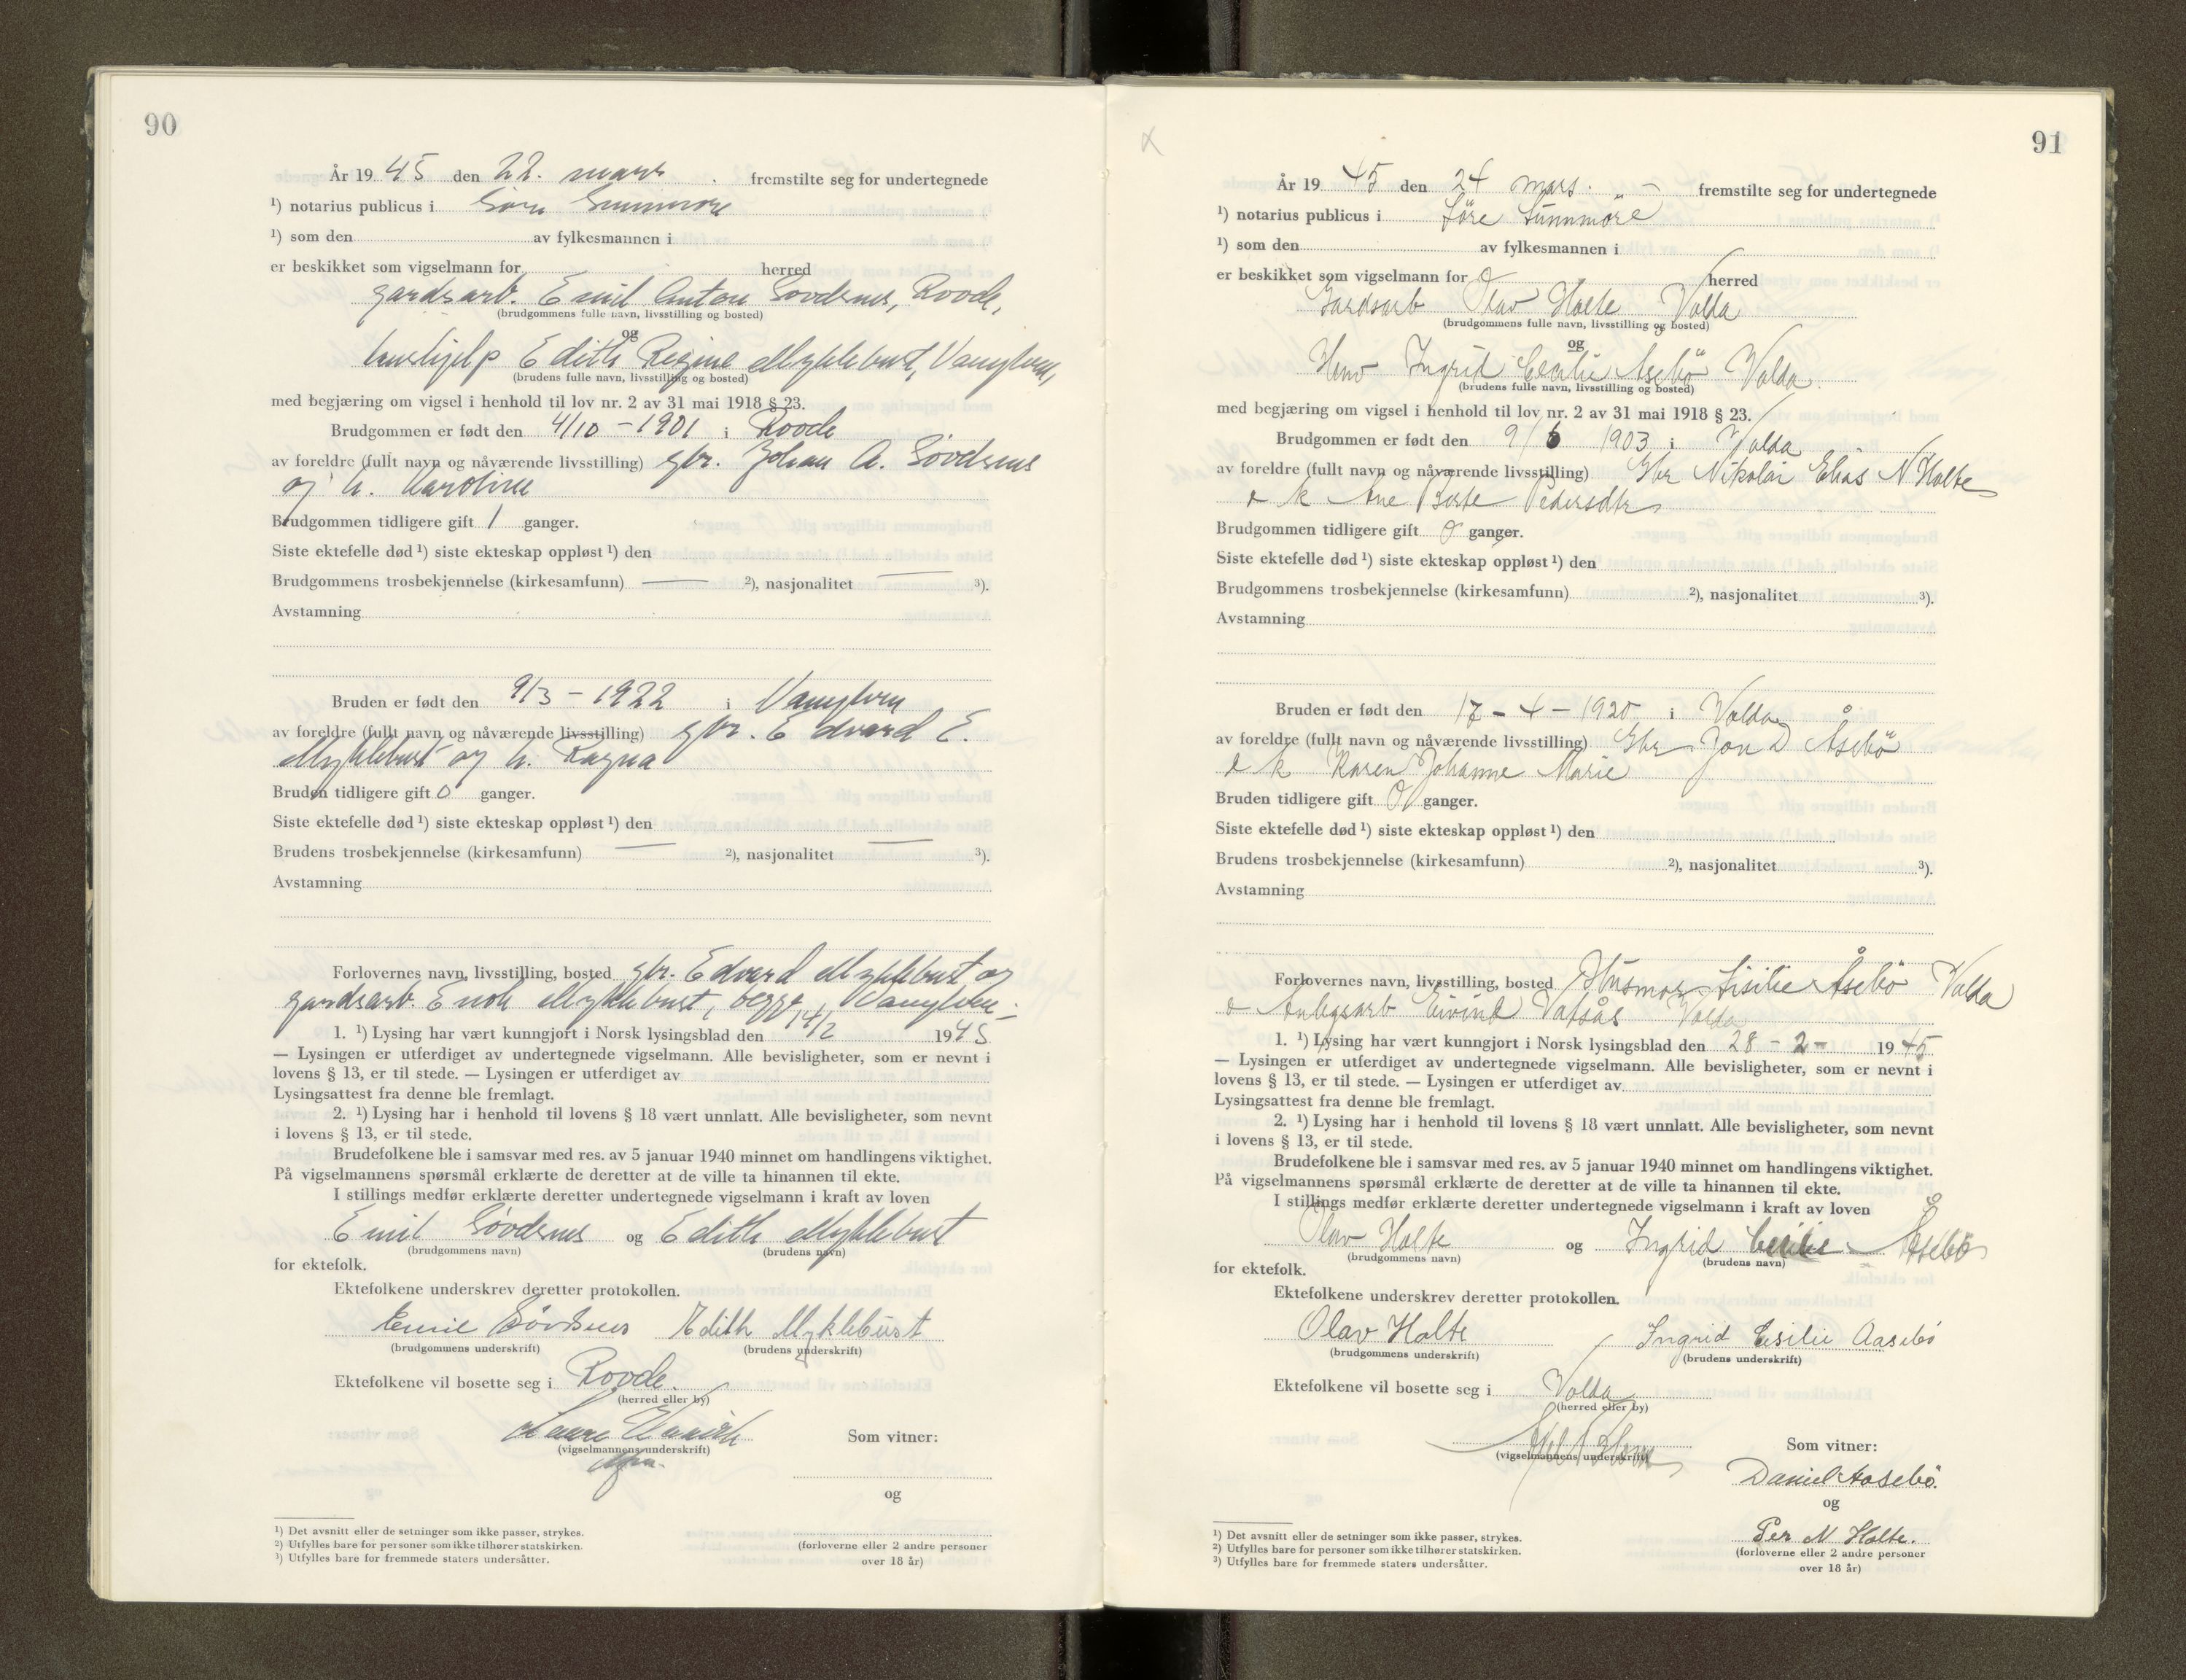 90
År 19 45 den 22. mars. fremstilte seg for undertegnede
¹) notarius publicus i Søre Sunnmøre
¹) som den av fylkesmannen i
er beskikket som vigselmann for herred
gardsarb. Emil Anton Sovdsnes, Rovde,
(brudgommens fulle navn, livsstilling og bosted)
og
hushjelp Edith Regine Myklebust, Vanylven,
(brudens fulle navn, livsstilling og bosted)
med begjæring om vigsel i henhold til lov nr. 2 av 31 mai 1918 § 23.
Brudgommen er født den 4/10 - 1901 i Rovde
av foreldre (fullt navn og nåværende livsstilling) gbr. Johan A. Søvdsnes
og h. Karoline
Brudgommen tidligere gift 1 ganger.
Siste ektefelle død ¹) siste ekteskap oppløst ¹) den
Brudgommens trosbekjennelse (kirkesamfunn) — ²), nasjonalitet — ³).
Avstamning
Bruden er født den 9/3 - 1922 i Vanylven
av foreldre (fullt navn og nåværende livsstilling) gbr. Edvard E.
Myklebust og h. Ragna
Bruden tidligere gift 0 ganger.
Siste ektefelle død ¹) siste ekteskap oppløst ¹) den
Brudens trosbekjennelse (kirkesamfunn) — ²), nasjonalitet — ³).
Avstamning
Forlovernes navn, livsstilling, bosted gbr. Edvard Myklebust og
gardsarb. Enok Myklebust, begge Vanylven.
1. ¹) Lysing har vært kunngjort i Norsk lysingsblad den 14/2 1945
— Lysingen er utferdiget av undertegnede vigselmann. Alle bevisligheter, som er nevnt i
lovens § 13, er til stede. — Lysingen er utferdiget av
Lysingsattest fra denne ble fremlagt.
2. ¹) Lysing har i henhold til lovens § 18 vært unnlatt. Alle bevisligheter, som nevnt
i lovens § 13, er til stede.
Brudefolkene ble i samsvar med res. av 5 januar 1940 minnet om handlingens viktighet.
På vigselmannens spørsmål erklærte de deretter at de ville ta hinannen til ekte.
I stillings medfør erklærte deretter undertegnede vigselmann i kraft av loven
Emil Søvdsnes og Edith Myklebust
(brudgommens navn) (brudens navn)
for ektefolk.
Ektefolkene underskrev deretter protokollen.
Emil Sövdsnes Edith Myklebust
(brudgommens underskrift) (brudens underskrift)
Ektefolkene vil bosette seg i Rovde.
(herred eller by)
(vigselmannens underskrift)
Som vitner:
og
(forloverne eller 2 andre personer
over 18 år)
¹) Det avsnitt eller de setninger som ikke passer, strykes.
²) Utfylles bare for personer som ikke tilhører statskirken.
³) Utfylles bare for fremmede staters undersåtter.
91
År 19 45 den 24 mars. fremstilte seg for undertegnede
¹) notarius publicus i Söre Sunnmöre
¹) som den av fylkesmannen i
er beskikket som vigselmann for herred
Gardsarb Olav Holte Volda
(brudgommens fulle navn, livsstilling og bosted)
og
Ingrid Cecilie Åsebö Volda
(brudens fulle navn, livsstilling og bosted)
med begjæring om vigsel i henhold til lov nr. 2 av 31 mai 1918 § 23.
Brudgommen er født den 9/6 1903 i Volda
av foreldre (fullt navn og nåværende livsstilling) Gbr Nikolai Elias N Holte
o k Ane Berte Pedersdtr
Brudgommen tidligere gift 0 ganger.
Siste ektefelle død ¹) siste ekteskap oppløst ¹) den
Brudgommens trosbekjennelse (kirkesamfunn) ²), nasjonalitet ³).
Avstamning
Bruden er født den 17 - 4 - 1920 i Volda
av foreldre (fullt navn og nåværende livsstilling) Gbr Jon D Åsebö
o k Karen Johanne Marie
Bruden tidligere gift 0 ganger.
Siste ektefelle død ¹) siste ekteskap oppløst ¹) den
Brudens trosbekjennelse (kirkesamfunn) ²), nasjonalitet ³).
Avstamning
Forlovernes navn, livsstilling, bosted Husmor Sisilie Åsebö Volda
o Anlegsarb Eivind Vatsås Volda
1. ¹) Lysing har vært kunngjort i Norsk lysingsblad den 28 - 2 - 1945
— Lysingen er utferdiget av undertegnede vigselmann. Alle bevisligheter, som er nevnt i
lovens § 13, er til stede. — Lysingen er utferdiget av
Lysingsattest fra denne ble fremlagt.
2. ¹) Lysing har i henhold til lovens § 18 vært unnlatt. Alle bevisligheter, som nevnt
i lovens § 13, er til stede.
Brudefolkene ble i samsvar med res. av 5 januar 1940 minnet om handlingens viktighet.
På vigselmannens spørsmål erklærte de deretter at de ville ta hinannen til ekte.
I stillings medfør erklærte deretter undertegnede vigselmann i kraft av loven
Olav Holte og Ingrid Åsebö
(brudgommens navn) (brudens navn)
for ektefolk.
Ektefolkene underskrev deretter protokollen.
Olav Holte Ingrid Cisilie Aasebö
(brudgommens underskrift) (brudens underskrift)
Ektefolkene vil bosette seg i Volda
(herred eller by)
(vigselmannens underskrift)
Som vitner:
Daniel Aasebö.
og
Per N Holte.
(forloverne eller 2 andre personer
over 18 år)
¹) Det avsnitt eller de setninger som ikke passer, strykes.
²) Utfylles bare for personer som ikke tilhører statskirken.
³) Utfylles bare for fremmede staters undersåtter.